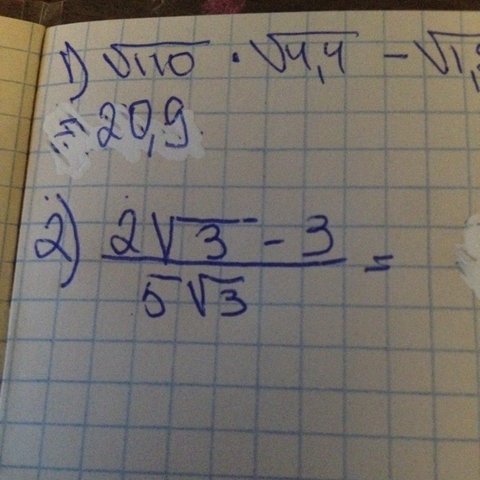 1) √110 · √4,4 - √1,
= 20,9
2) (2√3 - 3) / (5√3) =